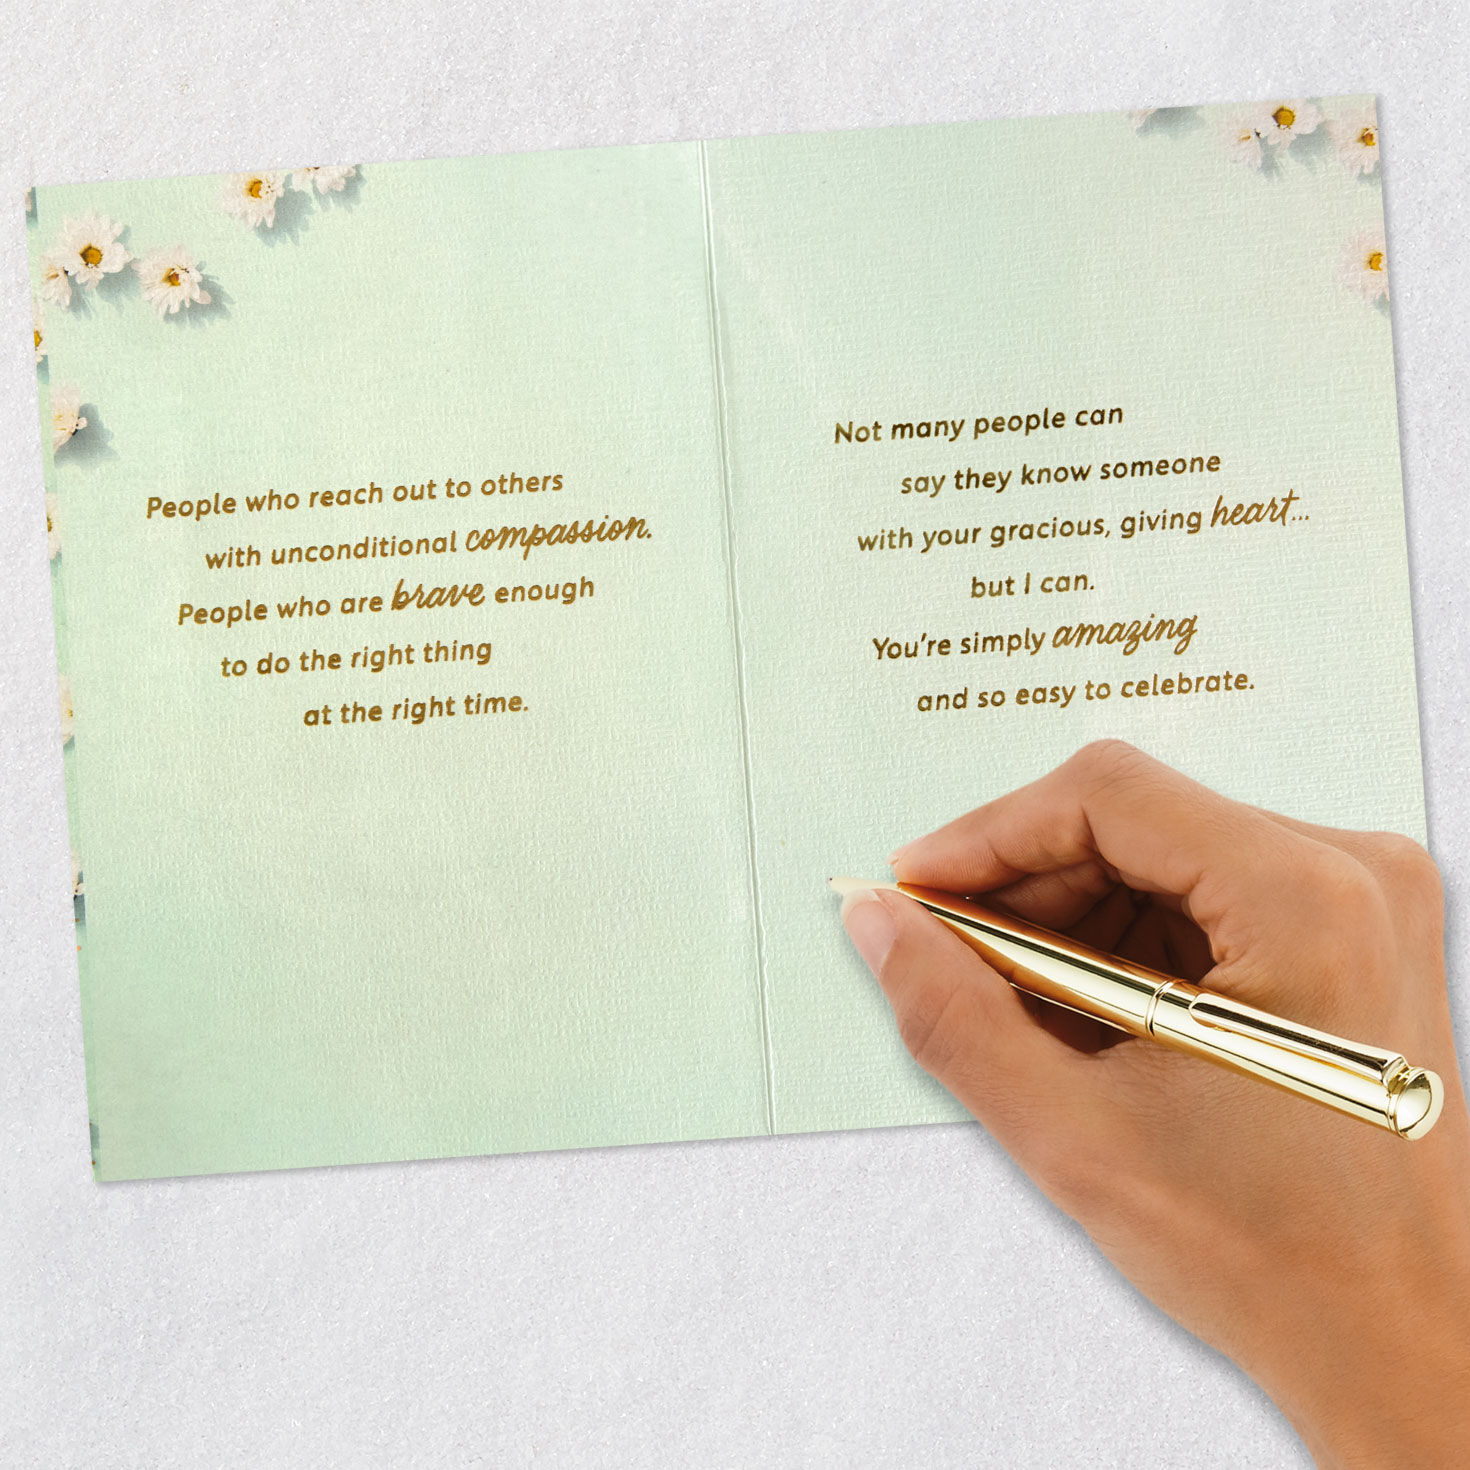 People who reach out to others
with unconditional compassion.
People who are brave enough
to do the right thing
at the right time.
Not many people can
say they know someone
with your gracious, giving heart...
but I can.
You're simply amazing
and so easy to celebrate.